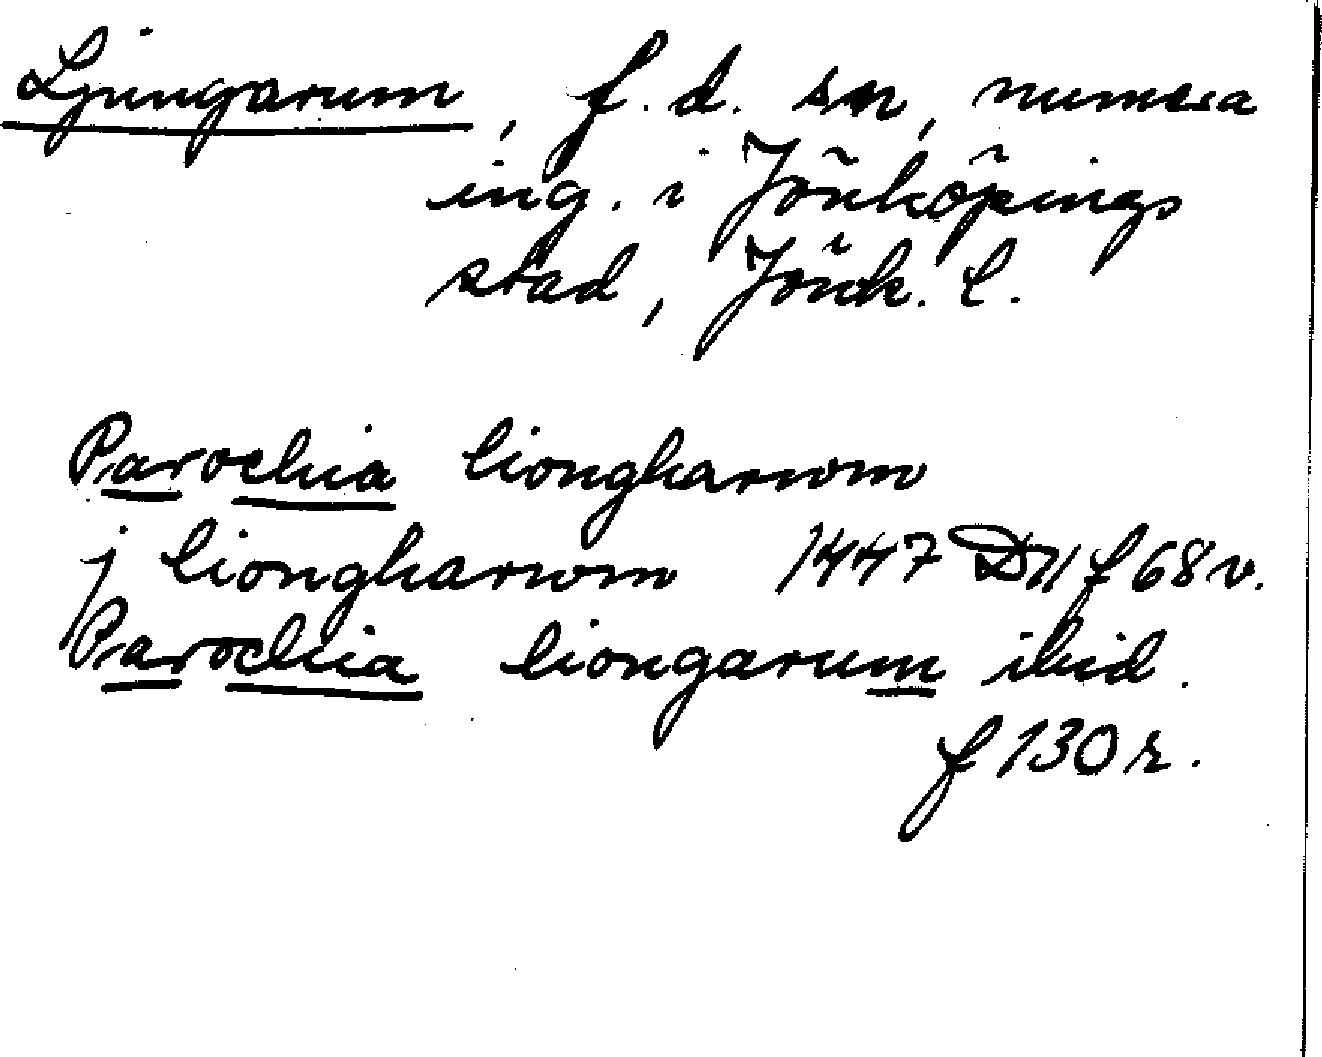 Ljungarum, f.d. sn, numera
ing. i Jönköpings
stad, Jönk. l.
Parochia liongharwm
j liongharwm 1447 D11 f 68 v.
Parochia liongarum ibid.
f 130 r.